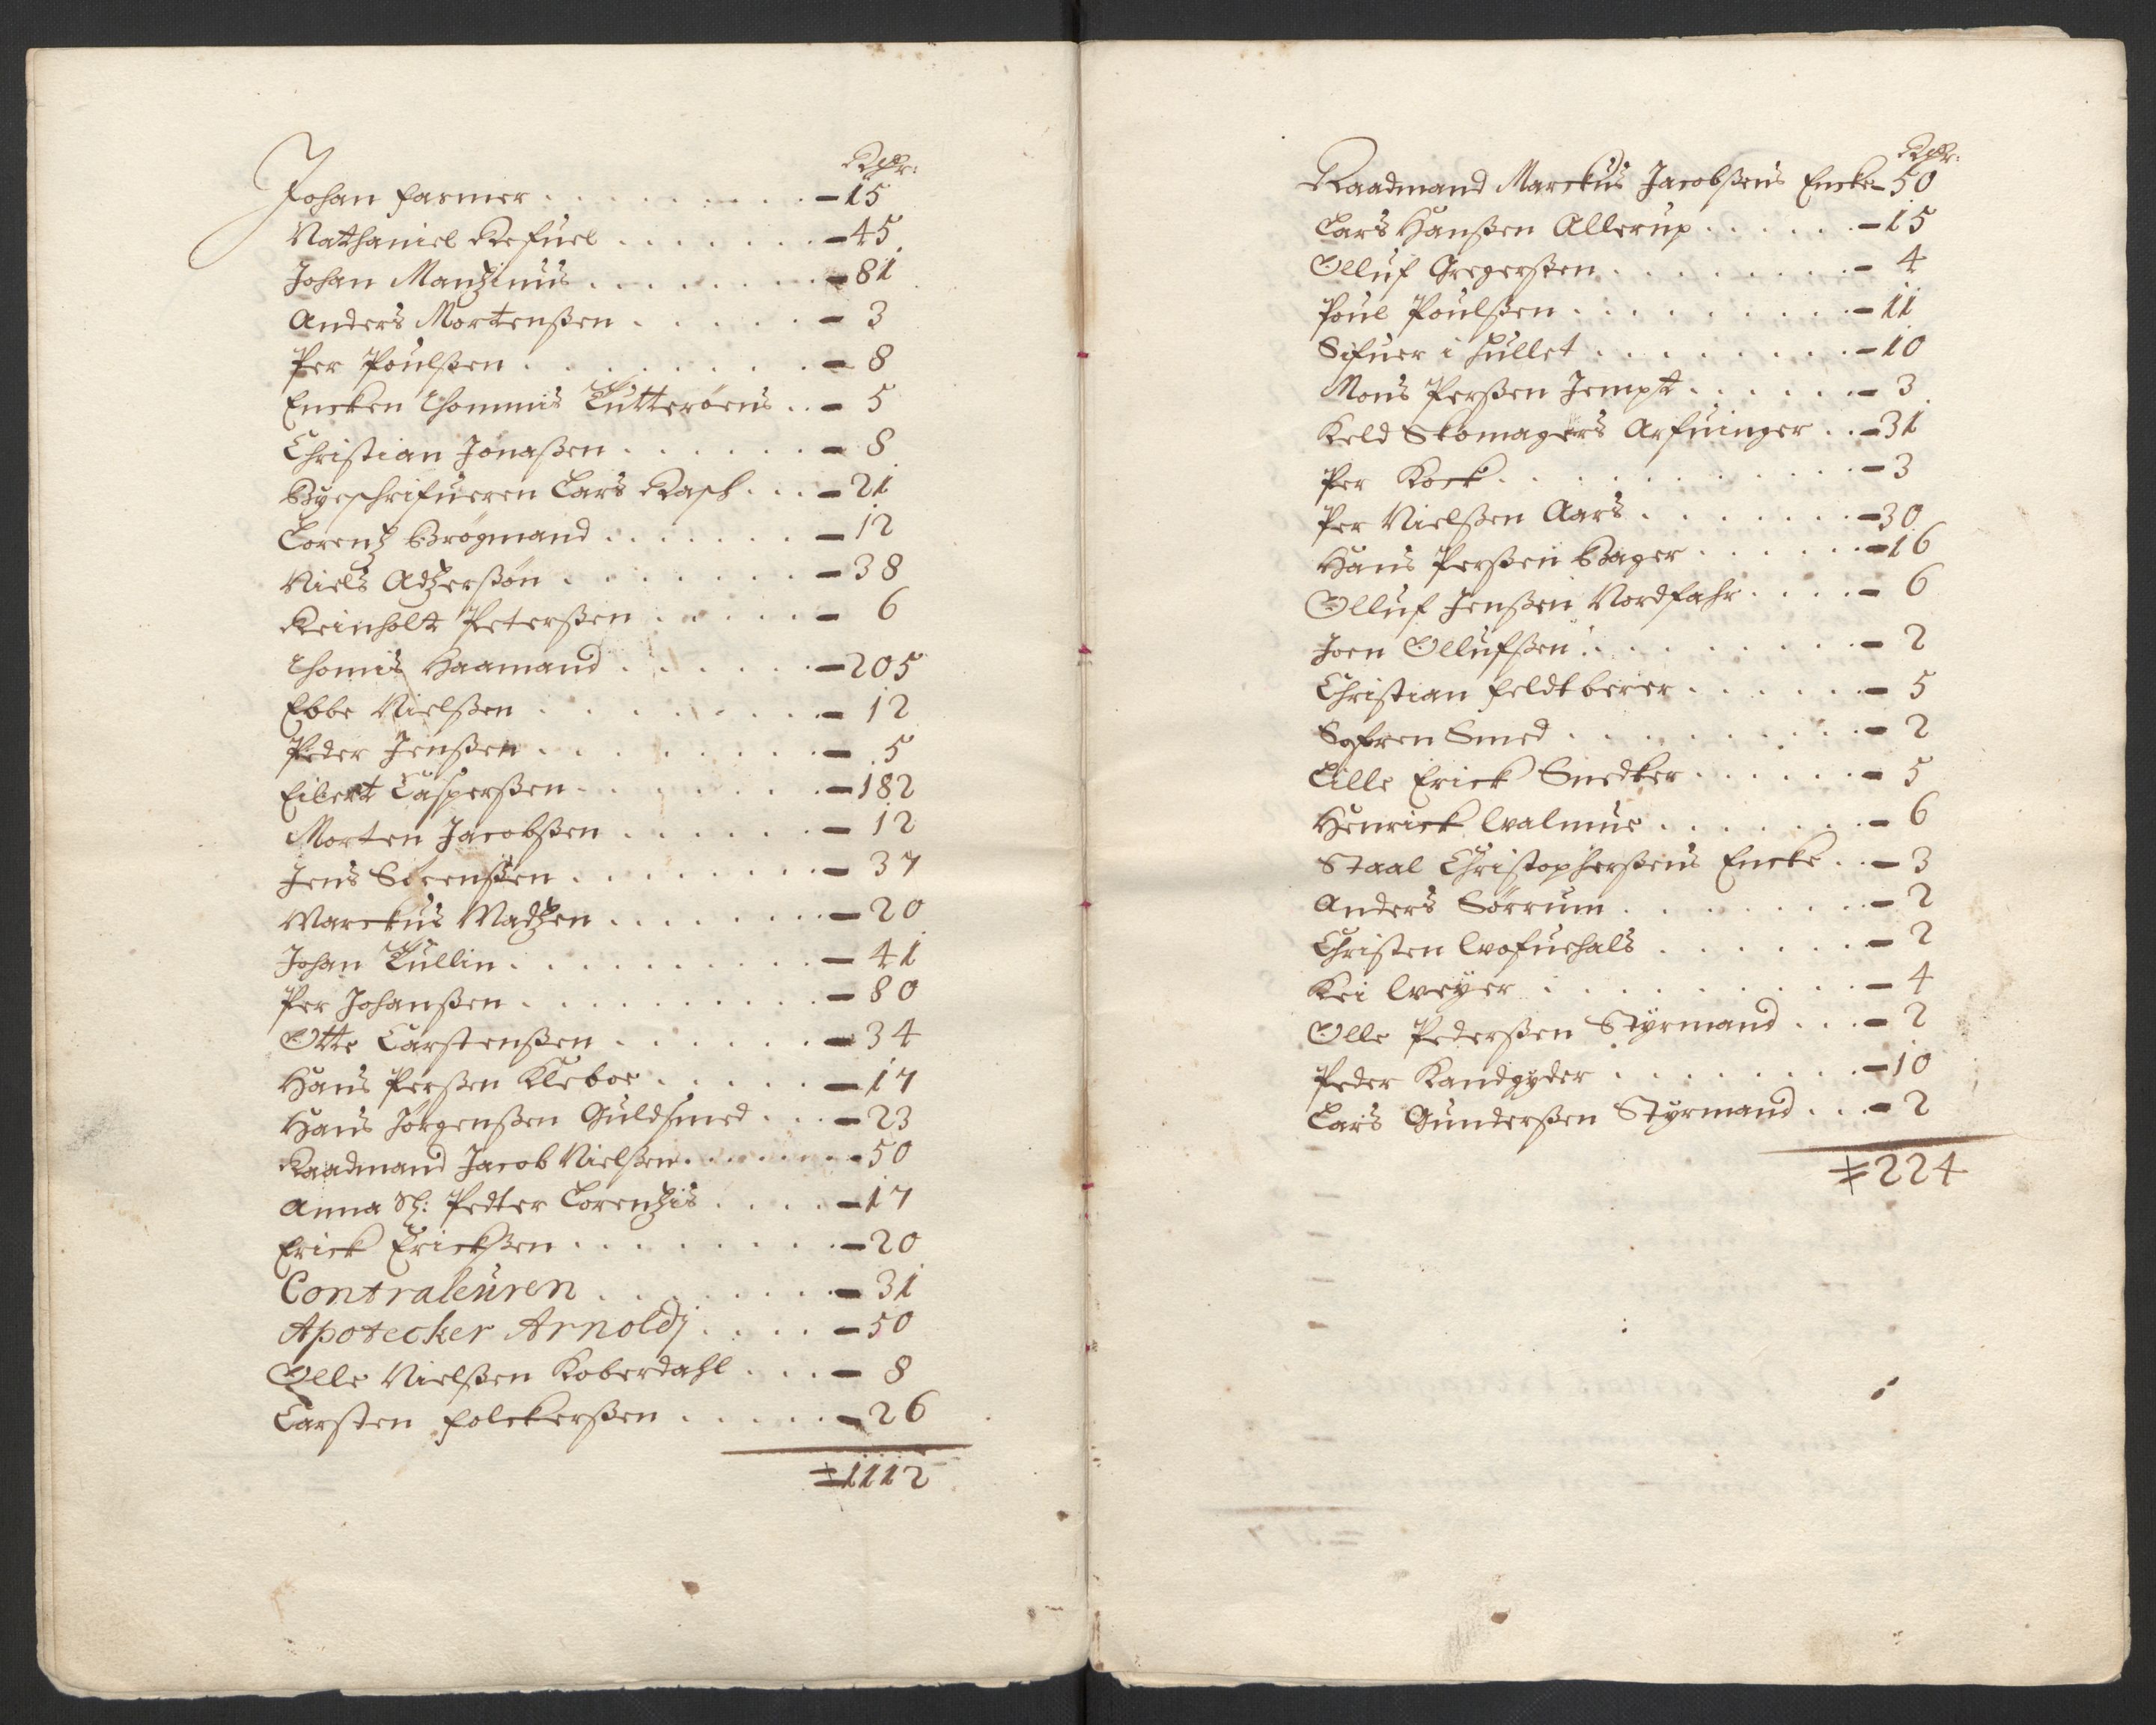 Rdr:
Johan Farmer . . . . . . . . . – 15
Nathaniel Refuel . . . . . . . – 45
Johan Mantzinus . . . . . . . . – 81
Anders Mortenßen . . . . . – 3
Per Poulßen . . . . . . . . – 8
Encken Thommis Tutterøens . . – 5
Christian Jonaßen . . . . . . – 8
Byeschrifueren Lars Rasch . . . – 21
Lorentz Brøgmand . . . . . . . – 12
Niels Adzerßøn . . . . . . . – 38
Reinholt Peterßen . . . . . – 6
Thomis Haamand . . . . . . – 205
Ebbe Nielßen . . . . . . . . – 12
Peder Jenßen . . . . . . . . – 5
Eilert Casperßen . . . . . . . – 182
Morten Jacobßen . . . . . . – 12
Jens Sørenßen . . . . . . . . – 37
Marckus Madtzen . . . . . . . – 20
Johan Tullin . . . . . . . . . – 41
Per Johanßen . . . . . . . . . – 80
Otte Carstenßen . . . . . . – 34
Hans Perßen Kleboe . . . . . – 17
Hans Jørgenßen Guldsmed . . . – 23
Raadmand Jacob Nielßen . . . . . . – 50
Anna Sl: Pedter Lorentzis . . . . – 17
Erick Erickßen . . . . . . . . – 20
Contraleuren . . . . . . . – 31
Apotecker Arnoldj . . . . – 50
Olle Nielßen Koberdahl . . . – 8
Carsten Folckerßen . . . . . – 26
= 1112
Rdr:
Raadmand Marckus Jacobßens Encke – 50
Lars Hanßen Allerup . . . . . . – 15
Olluf Gregerßen . . . . . . . . – 4
Poul Poulßen . . . . . . . . . – 11
Sifuer i Hullet . . . . . . . . – 10
Mons Perßen Jempt . . . . . . – 3
Keld Skomagers Arfuinger . . – 31
Per Kock . . . . . . . . . . . – 3
Per Nielßen Aars . . . . . . . – 30
Hans Perßen Bager . . . . . . – 16
Olluf Jenßen Nordfahr . . . . – 6
Joen Ollufßen . . . . . . . . – 2
Christian Feldtberer . . . . . . – 5
Søfren Smed . . . . . . . . . – 2
Lille Erick Snedker . . . . . . – 5
Henrick Walmue . . . . . . . – 6
Staal Christopherßens Encke . . – 3
Anders Sørrum . . . . . . . – 2
Christen Wofuehals . . . . . . – 2
Kei Weÿer . . . . . . . . . – 4
Olle Pederßen Stÿrmand . . . – 2
Peder Kandgyder . . . . . . . . – 10
Lars Gunderßen Styrmand . . . – 2
= 224